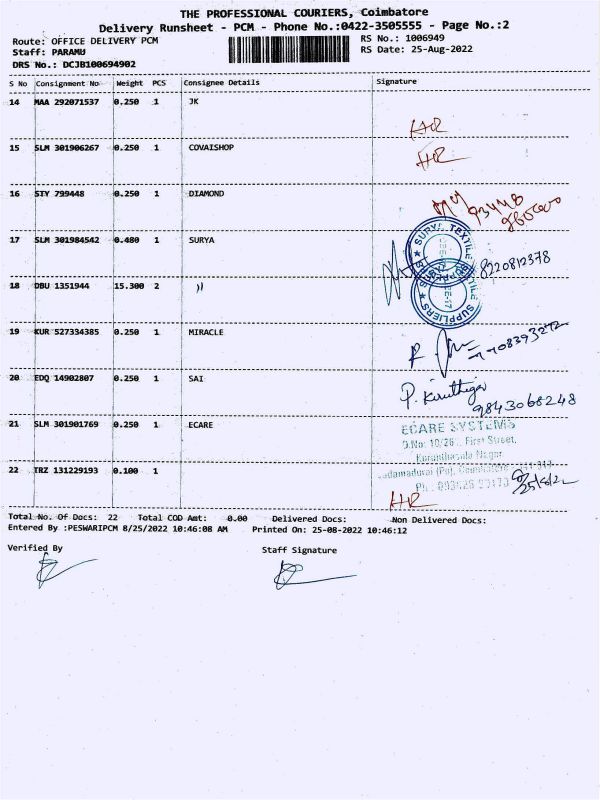 THE PROFESSIONAL COURIERS, Coimbatore
Delivery Runsheet - PCM - Phone No.:0422-3505555 - Page No.:2
Route: OFFICE DELIVERY PCM RS No.: 1006949
Staff: PARAMU RS Date: 25-Aug-2022
DRS No.: DCJB100694902
S No Consignment No Weight PCS Consignee Details Signature
14 MAA 292071537 0.250 1 JK
HR
15 SLM 301906267 0.250 1 COVAISHOP
HR
16 STY 799448 0.250 1 DIAMOND
93448
17 SLM 301984542 0.480 1 SURYA
SURYA TEXTILE SUPPLIERS
8220812378
18 DBU 1351944 15.300 2 ))
19 KUR 527334385 0.250 1 MIRACLE
20 EDQ 14902807 0.250 1 SAI
P. Kiruthiga
9843068248
21 SLM 301901769 0.250 1 ECARE
ECARE SYSTEMS
D.No: 10/26, First Street,
Nagar
22 TRZ 131229193 0.100 1
25/8/22
HR
Total No. Of Docs: 22 Total COD Amt: 0.00 Delivered Docs: Non Delivered Docs:
Entered By :PESWARIPCM 8/25/2022 10:46:08 AM Printed On: 25-08-2022 10:46:12
Verified By Staff Signature